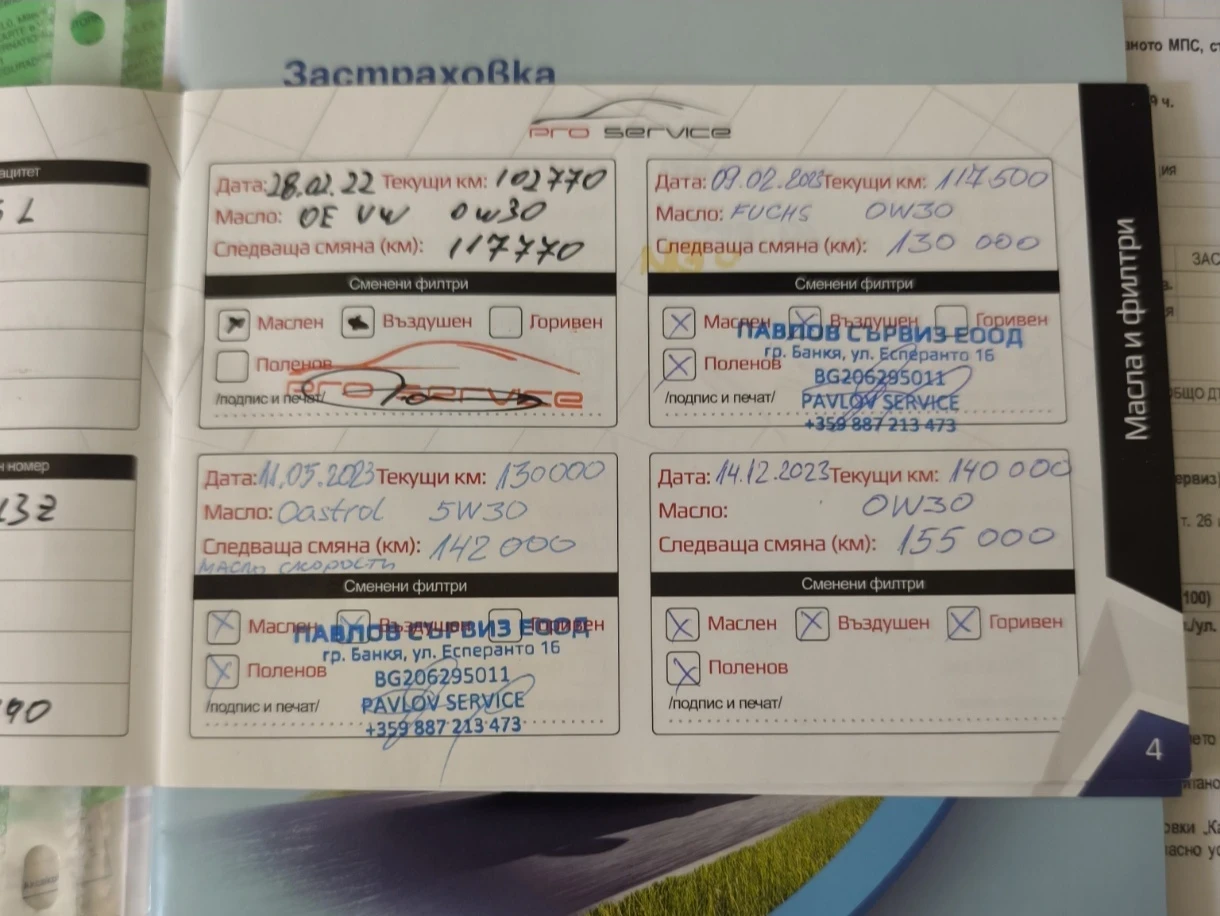 Застраховка
Pro service
Дата: 28.02.22 Текущи км: 102770
Масло: OE VW 0w30
Следваща смяна (км): 117770
Сменени филтри
Маслен Въздушен Горивен
Поленов
Pro service
/подпис и печат/
Дата: 09.02.2023 Текущи км: 117500
Масло: FUCHS 0W30
Следваща смяна (км): 130 000
Сменени филтри
Маслен Въздушен Горивен
ПАВЛОВ СЪРВИЗ ЕООД
гр. Банкя, ул. Есперанто 16
Поленов
BG206295011
/подпис и печат/
PAVLOV SERVICE
+359 887 213 473
Дата: 11.05.2023 Текущи км: 130000
Масло: Castrol 5W30
Следваща смяна (км): 142 000
масло скорости
Сменени филтри
Маслен Въздушен Горивен
ПАВЛОВ СЪРВИЗ ЕООД
гр. Банкя, ул. Есперанто 16
Поленов
BG206295011
/подпис и печат/
PAVLOV SERVICE
+359 887 213 473
Дата: 14.12.2023 Текущи км: 140 000
Масло: 0W30
Следваща смяна (км): 155 000
Сменени филтри
Маслен Въздушен Горивен
Поленов
/подпис и печат/
Масла и филтри
4
номер
МПС,
9 ч.
т. 26